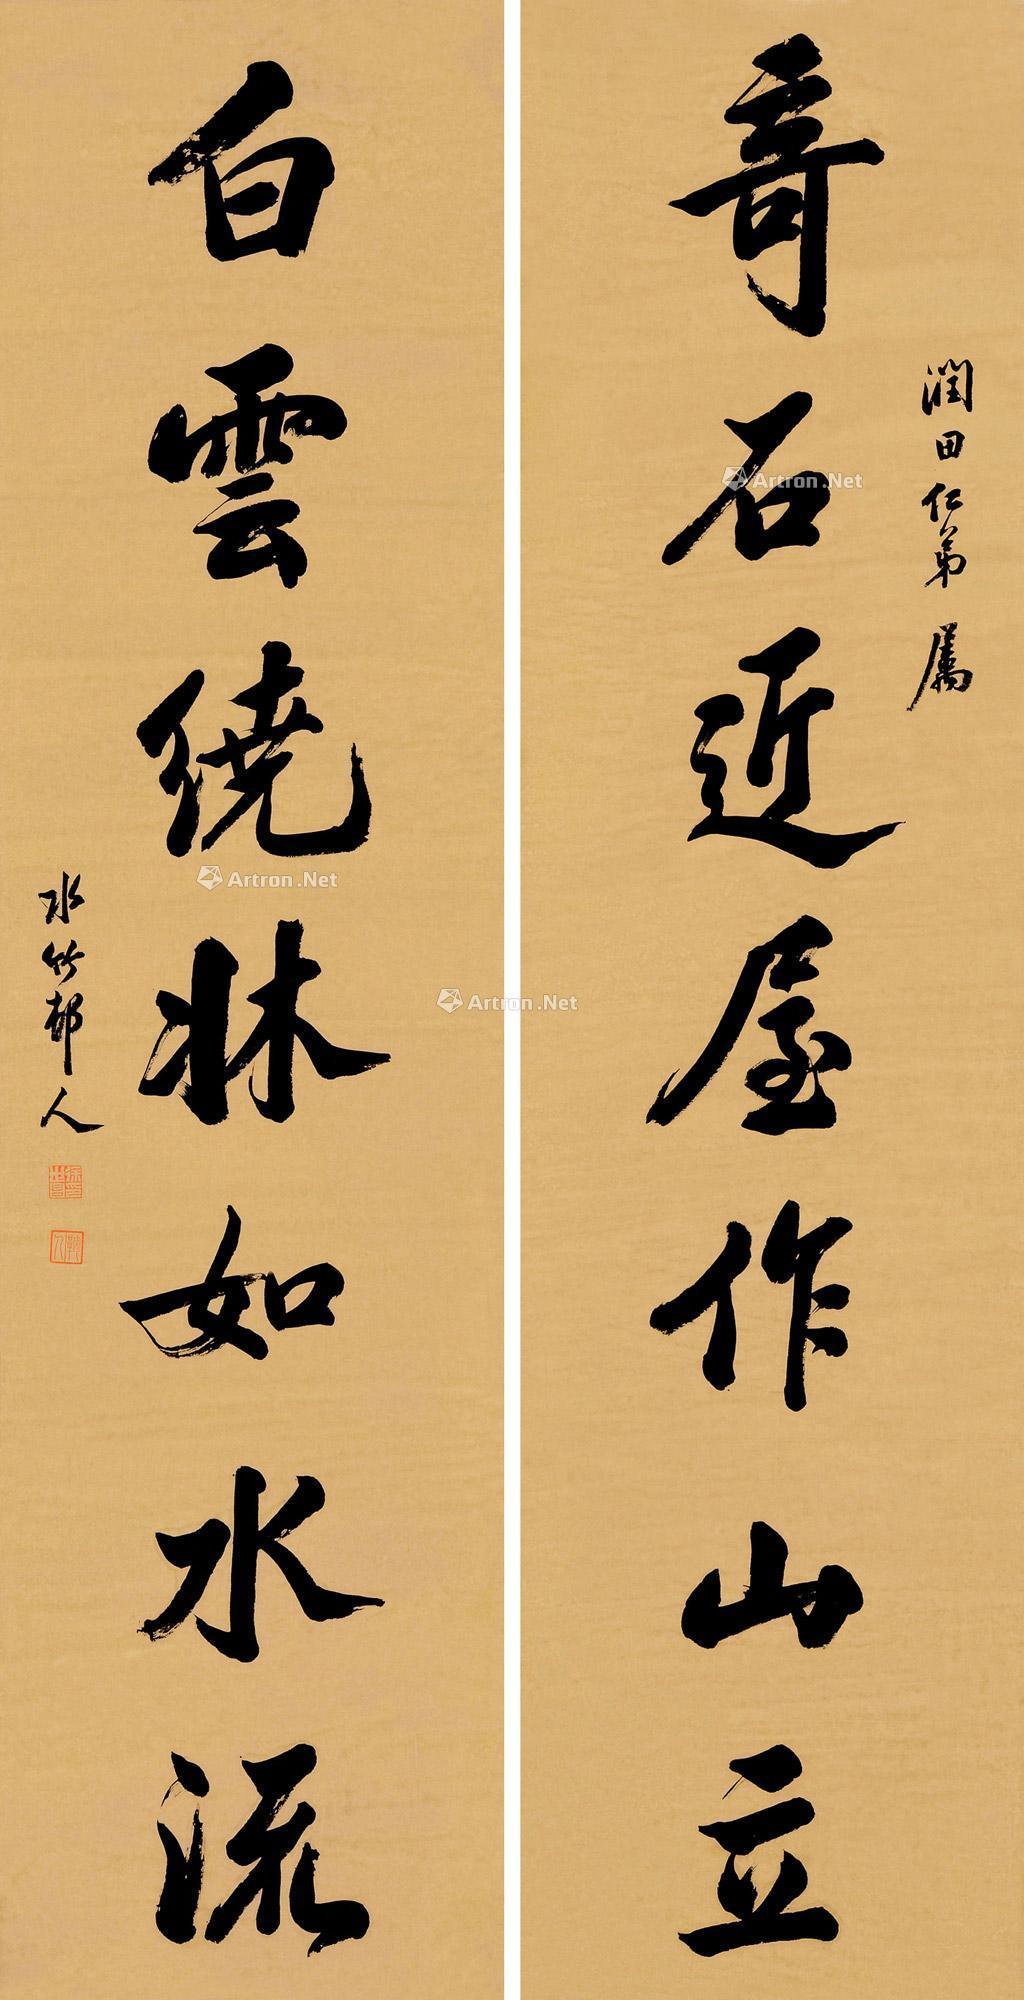 奇石近屋作山立
潤田仁弟屬
白雲繞牀如水流
水竹邨人
Artron.Net
Artron.Net
Artron.Net